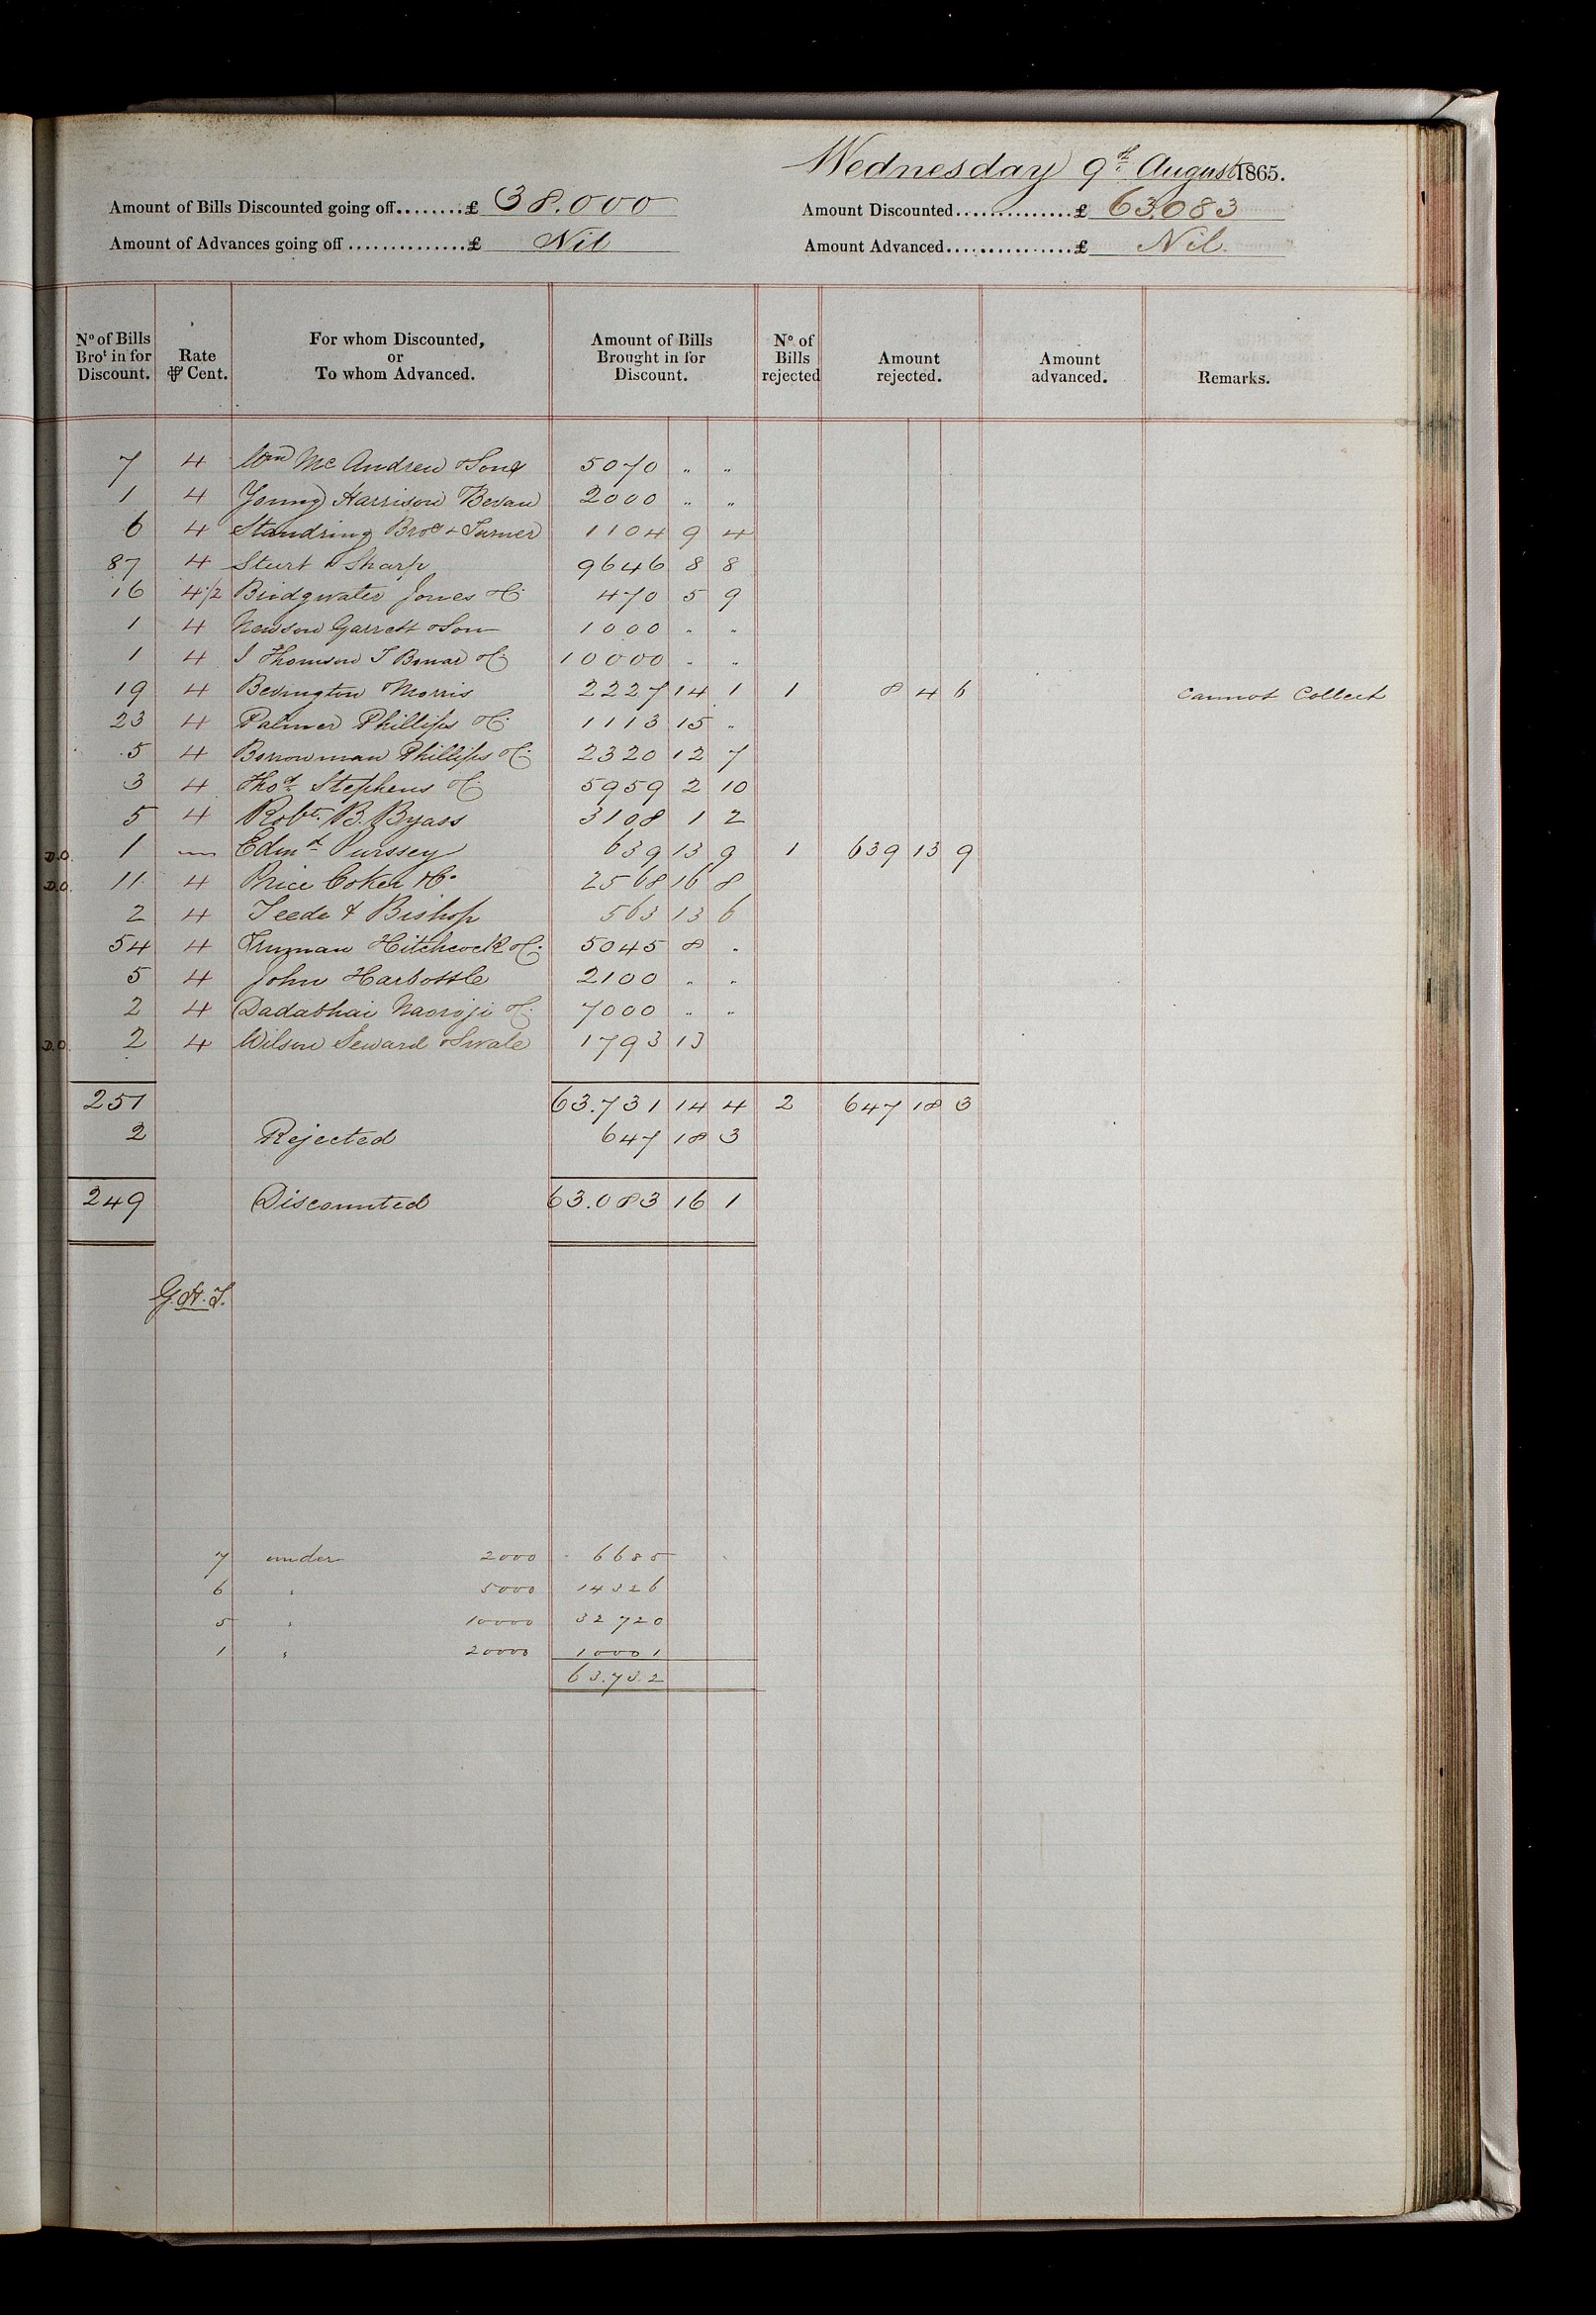 Wednesday 9th August 1865.
Amount of Bills Discounted going off........£ 38.000 Amount Discounted..............£ 63.083
Amount of Advances going off..............£ Nil Amount Advanced..............£ Nil.
No of Bills Brot in for Discount. Rate ⅌ Cent. For whom Discounted, or To whom Advanced. Amount of Bills Brought in for Discount. No. of Bills rejected Amount rejected. Amount advanced. Remarks.
7 4 Wm Mc Andrew & Sons 5070 " "
1 4 Young Harrison Bevan 2000 " "
6 4 Standring Bros & Turner 1104 9 4
87 4 Sturt & Sharp 9646 8 8
16 4 1/2 Bridgwater Jones & Co 470 5 9
1 4 Newson Garrett & Son 1000 " "
1 4 J Thomson T Bonar & Co 10000 " "
19 4 Bevington & Morris 2227 14 1 1 8 4 6 Cannot Collect
23 4 Palmer Phillips & Co 1113 15 "
5 4 Borrowman Phillips & Co 2320 12 7
3 4 Thos Stephens & Co 5959 2 10
5 4 Robt. B. Byass 3108 1 2
D.O. 1 — Edmd Purssey 639 13 9 1 639 13 9
D.O. 11 4 Price Coker & Co 2568 16 8
2 4 Teede & Bishop 563 13 6
54 4 Truman Hitchcock & Co 5045 8 "
5 4 John Harbottle 2100 " "
2 4 Dadabhai Naoroji & Co 7000 " "
D.O. 2 4 Wilson Seward & Swale 1793 13
251 63.731 14 4 2 647 18 3
2 Rejected 647 18 3
249 Discounted 63.083 16 1
7 under 2000 6685
6 " 5000 14326
5 " 10000 32720
1 " 20000 10001
63.732